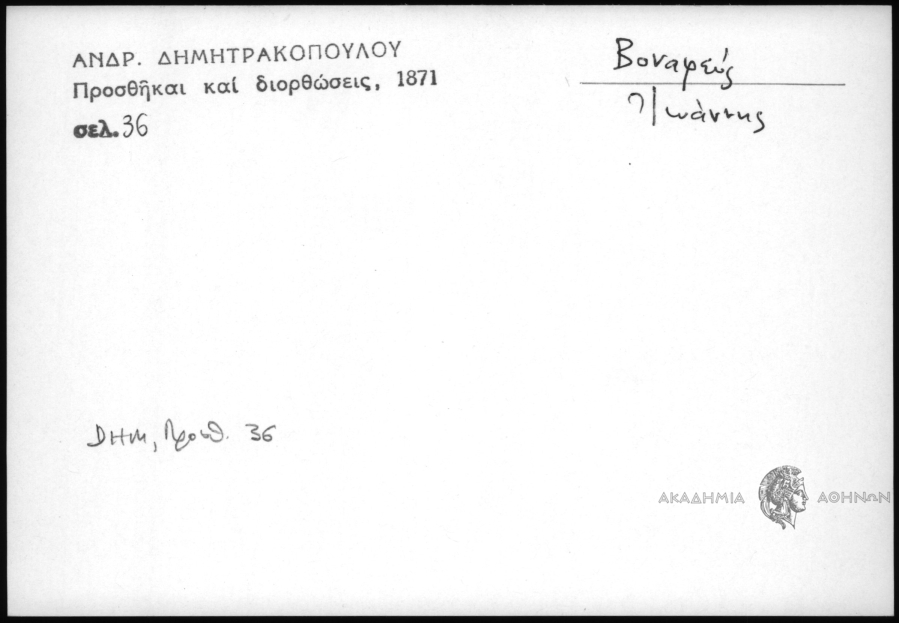 ΑΝΔΡ. ΔΗΜΗΤΡΑΚΟΠΟΥΛΟΥ
Προσθῆκαι καί διορθώσεις, 1871
σελ. 36
Βοναφεύς
Ἰωάννης
Δημ, Προσθ. 36
ΑΚΑΔΗΜΙΑ ΑΘΗΝΩΝ